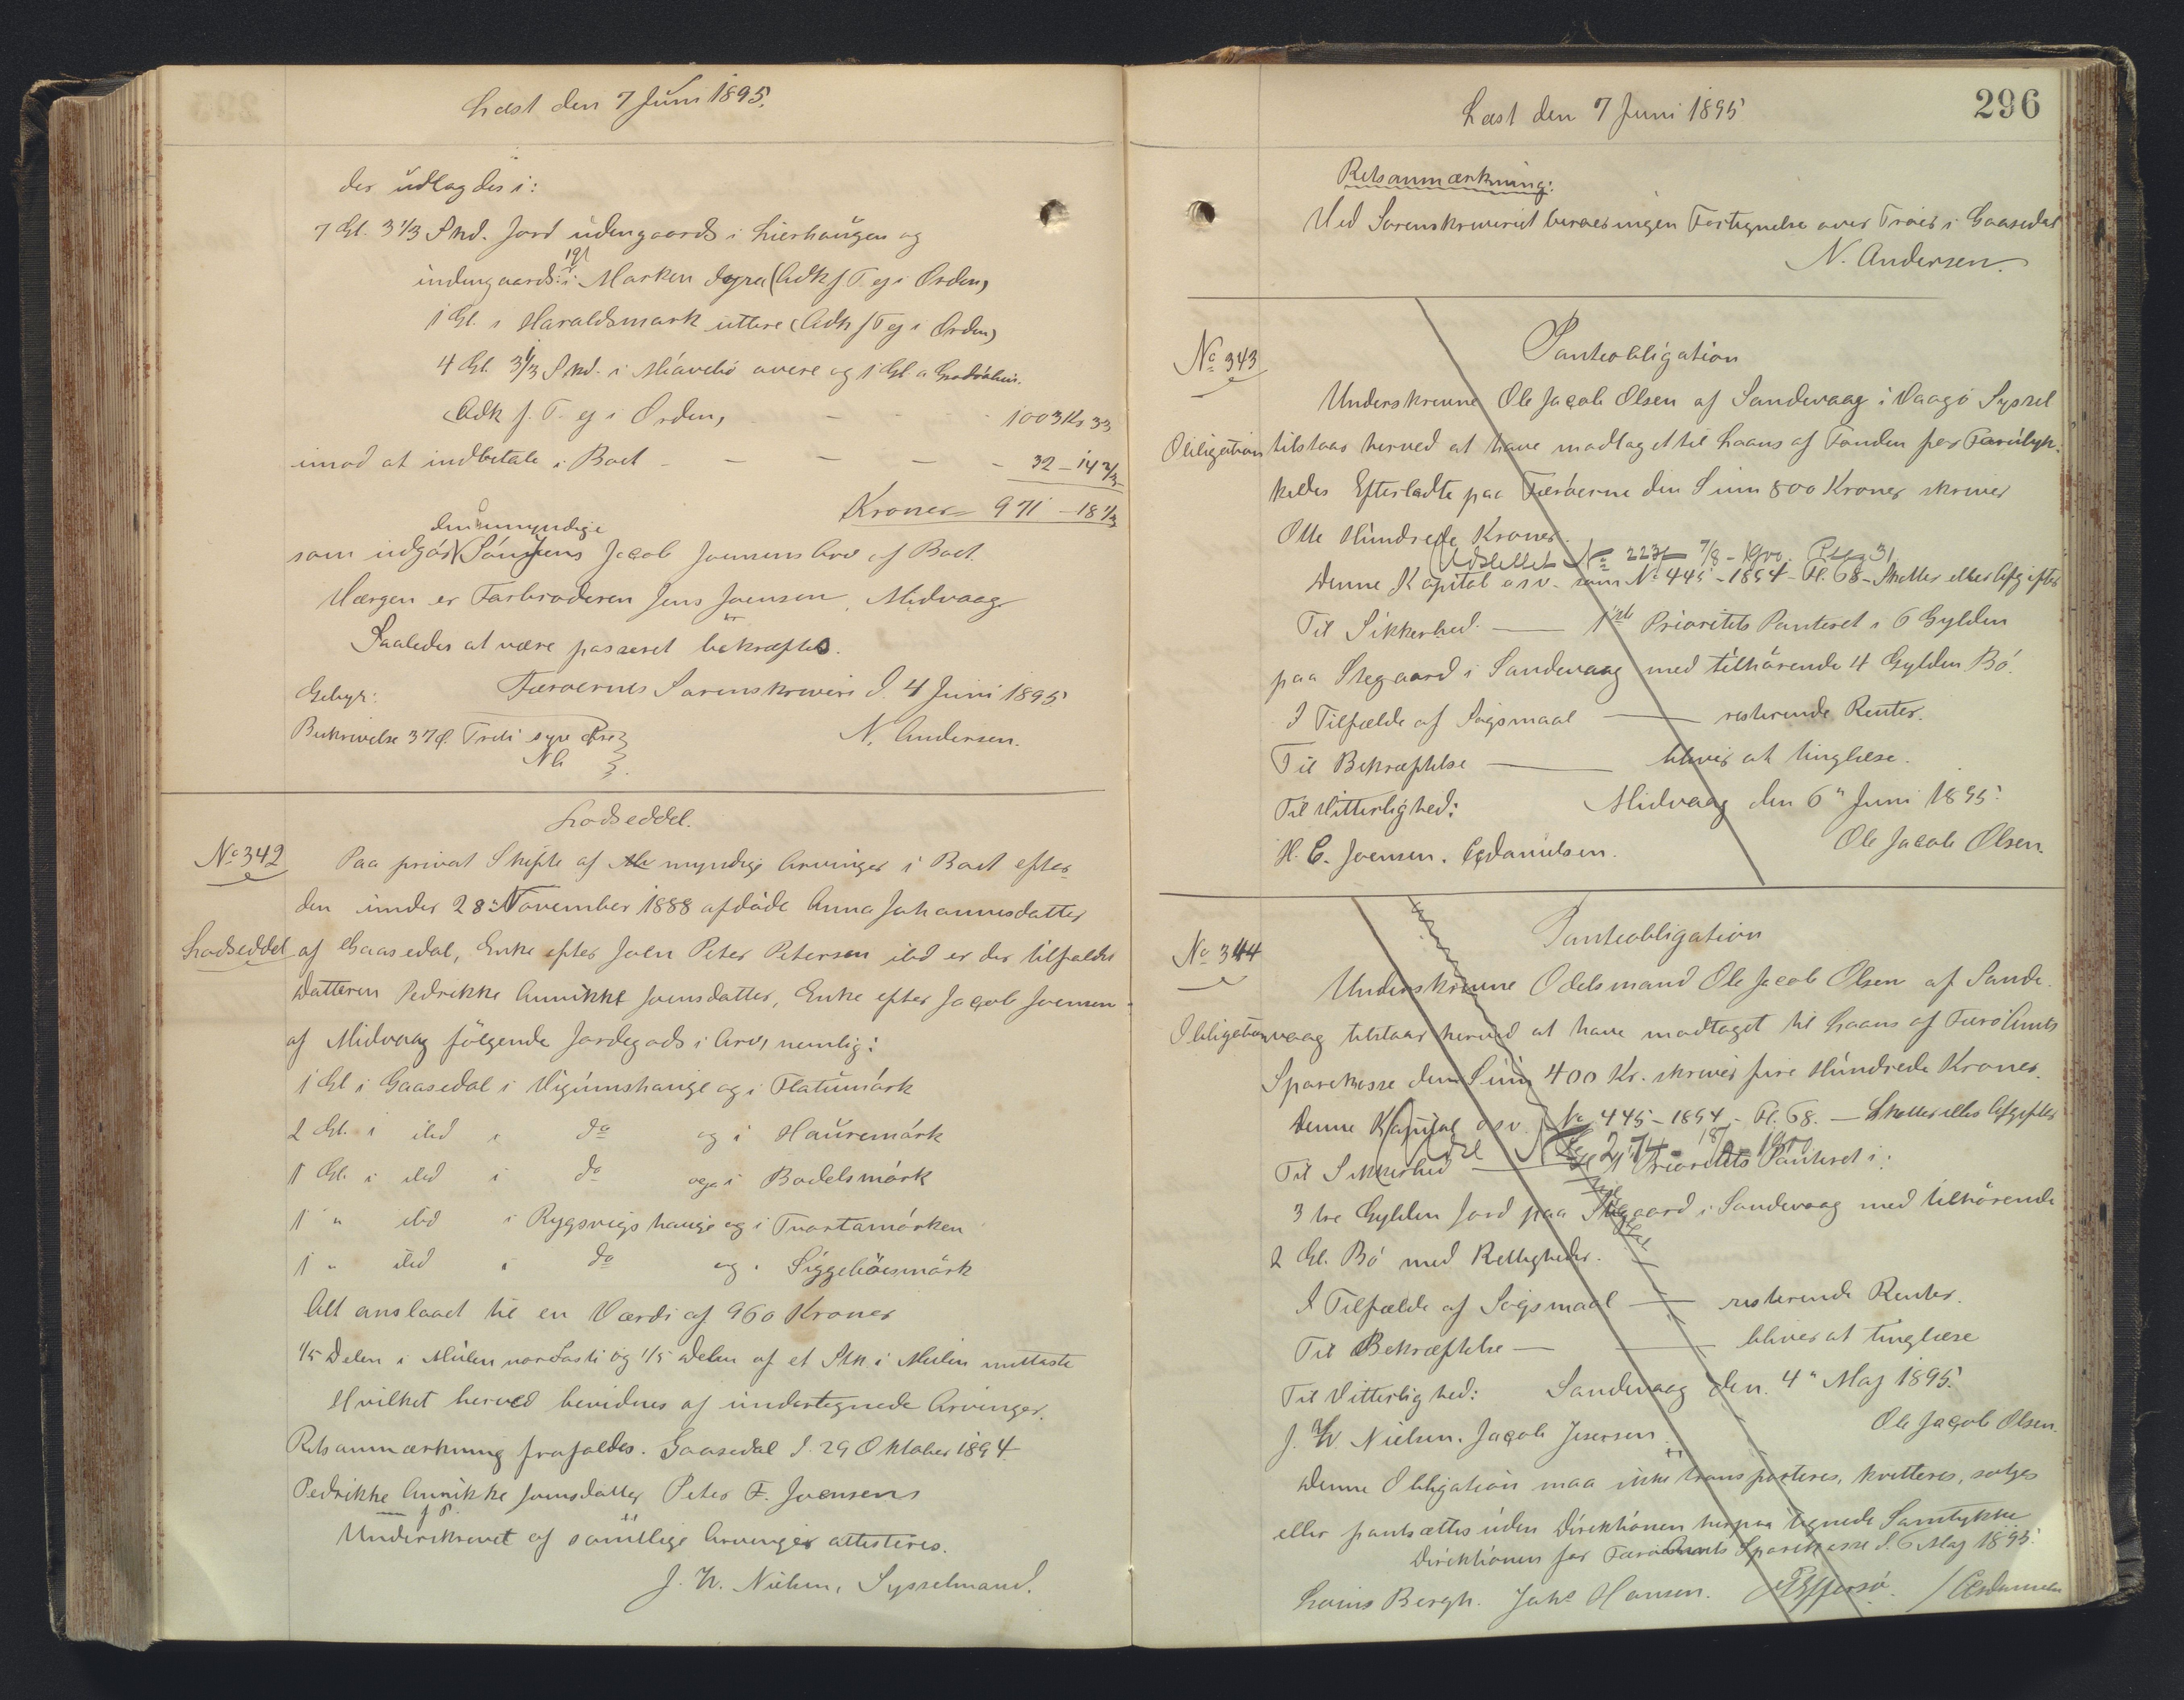 Læst den 7 Juni 1895.
der udlagdes i:
7 Gl. 3 1/3 Skd. Jord udengaards i Lierhaugen og
indengaards: 1 Gl i Marken dyra (Adk f T. ej i Orden,
1 Gl. i Haraldsmark uttere (Adk f T ej i Orden)
4 Gl. 3 1/3 Skd. i Miávelió overe og 1 Gl a
Adk f. T. ej i Orden, - - 1003 Kr 33
imod at indbetale i Boet - - - - - 32 - 14 2/3
Kroner = 971 - 18 1/3
den umyndige
som udgör Söns Jens Jacob Joensens Arv af Boet.
Værgen er Farbroderen Jens Joensen, Midvaag
Saaledes at være passeret bekræftes.
Gebyr: Færøernes Sorenskriveri d. 4 Juni 1895
Beskrivelse 37 Ø. Treti syv Øre N. Andersen.
NA
Lodseddel.
No 342 Paa privat Skifte af myndige Arvinger i Boet efter
den under 28 November 1888 afdöde Anna Johannesdatter
Lodseddel af Gaasedal, Enke efter Joen Peter Petersen ibd er der tilfaldet
Datteren Pedrikke Annikke Joensdatter, Enke efter Jacob Joensen
af Midvaag fölgende Jordegods i Arv, nemlig:
1 Gl i Gaasedal i Vigumshauge og i Flatumörk
2 Gl. i ibd i do og i Hauremörk
1 Gl. i ibd i do og i Bodelsmörk
1 " ibd i Rygsvigs hauge og i Tvortamörken
1 " ibd i do og i Siggehöesmörk
Alt anslaaet til en Værdi af 960 Kroner
1/5 Delen i Mulen nordasti og 1/5 Delen af et Stk i Mulen mittaste
Hvilket herved bevidnes af undertegnede Arvinger.
Retsanmærkning frafaldes. Gaasedal d. 29 Oktober 1894
Pedrikke Annikke Joensdatter Peter F. Joensens
f P.
Underskrevet af samtlige Arvinger attesteres.
J. W. Nielsen, Sysselmand.
Læst den 7 Juni 1895
296
Retsanmærkning:
Ved Sorenskriveriet beroer ingen Fortegnelse over Tröer i Gaasedal
N. Andersen.
Panteobligation
No 343
Underskrevne Ole Jacob Olsen af Sandevaag i Vaagö Syssel
Obligation tilstaar herved at have modtaget til Laans af Fonden for Forulyk-
kedes Efterladte paa Færöerne den Sum 800 Kroner skriver
Otte Hundrede Kroner.
Udslettet No 223 7/8 - 1900. Pag 31
Denne Kapital osv. som No 445 - 1894 - Fl. 68 - Skatter eller Afgifter
Til Sikkerhed. — 1ste Prioritets Panteret i 6 Gylden
paa Stegaard i Sandevaag med tilhörende 4 Gylden Bö.
I Tilfælde af Sögsmaal — resterende Renter.
Til Bekræftelse — bliver at tinglæse.
Til Vitterlighed: Midvaag den 6" Juni 1895.
H. C. Joensen. Ole Jacob Olsen.
Panteobligation
No 344
Underskrevne Odelsmand Ole Jacob Olsen af Sande-
Obligation vaag tilstaar herved at have modtaget til Laans af Færö Amts
Sparekasse den Sum 400 Kr. skriver fire Hundrede Kroner.
Denne Kapital osv. No 445 - 1894 - Fl. 68. — Skatter eller Afgifter
Til Sikkerhed — Prioritets Panteret i:
3 tre Gylden Jord paa Stegaard i Sandevaag med tilhörende
2 Gl. Bö med Rettigheder.
I Tilfælde af Sögsmaal — resterende Renter.
Til Bekræftelse — — bliver at tinglæse
Til Vitterlighed: Sandevaag den 4" Maj 1895.
J. W. Nielsen. Jacob Ole Jacob Olsen.
Denne Obligation maa ikke transporteres, kvitteres, sælges
eller pantsættes uden Direktionens herpaa tegnede Samtykke
Direktionen for Færö Amts Sparekasse d. 6 Maj 1895.
Louis Bergh. Johs Hansen.